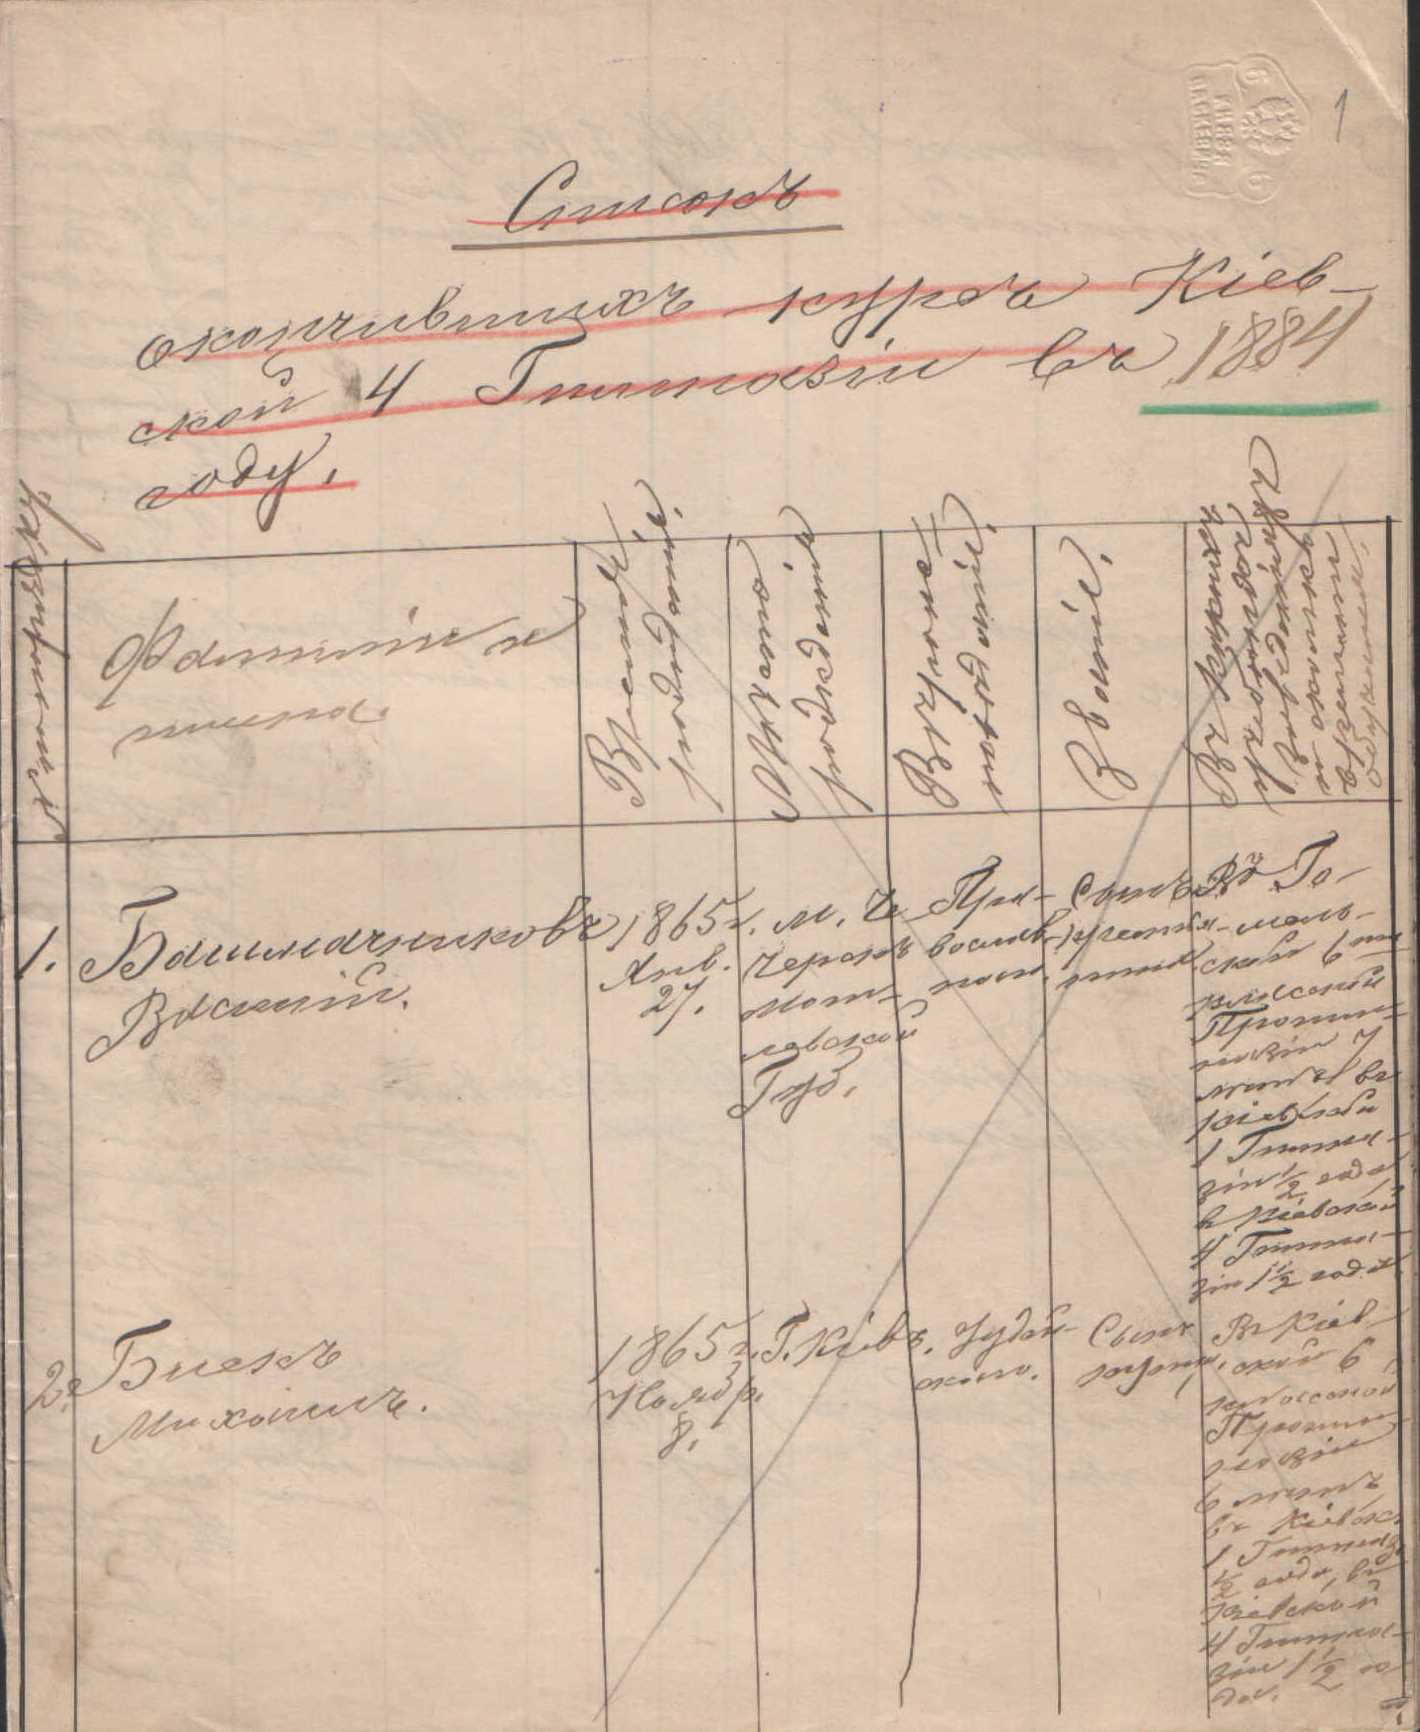 1
Списокъ
окончившихъ курсъ Кіев-
ской 4 Гимназіи въ 1884
году.
Фамиліи и
имена.
Время
рожденія.
Мѣсто
рожденія
Вѣроис-
повѣданіе.
Званіе.
Въ какихъ
учебныхъ
заведеніяхъ
1. Башмачниковъ
Василій.
1865 г.
Янв.
27.
м. Че-
череки
Моги-
левской
Губ.
Пра-
вослав-
наго.
Сынъ
Въ Го-
мель-
ской 6ти
классной
Прогим-
назіи 7
лѣтъ въ
Кіевской
1 Гимна-
зіи 1/2 года
въ Кіевской
4 Гимна-
зіи 1 1/2 года
2. Биекъ
Михаилъ.
1865 г.
Ноябр.
8.
Г. Кіевъ.
Іудей-
скаго.
Сынъ
купца.
Въ Кіев-
ской 6
классной
Прогим-
назіи
6 лѣтъ
въ Кіевск.
1 Гимназ.
1/2 года, въ
Кіевской
4 Гимна-
зіи 1 1/2 го-
да.